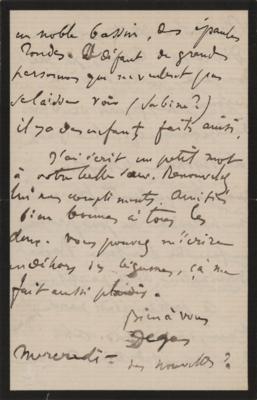 un noble bassin, des épaules
rondes. A défaut de grandes
personnes qui ne veulent pas
se laisser voir (Sabine?)
il y a des enfants faits ainsi.
J'ai écrit un petit mot
à votre belle sœur. Renouvelez
lui mes compliments. Amitiés
bien bonnes à tous les
deux. Vous pouvez m'écrire
en dehors des lignes, ça me
fait aussi plaisir.
Bien à vous
Degas
Mercredi — des nouvelles?